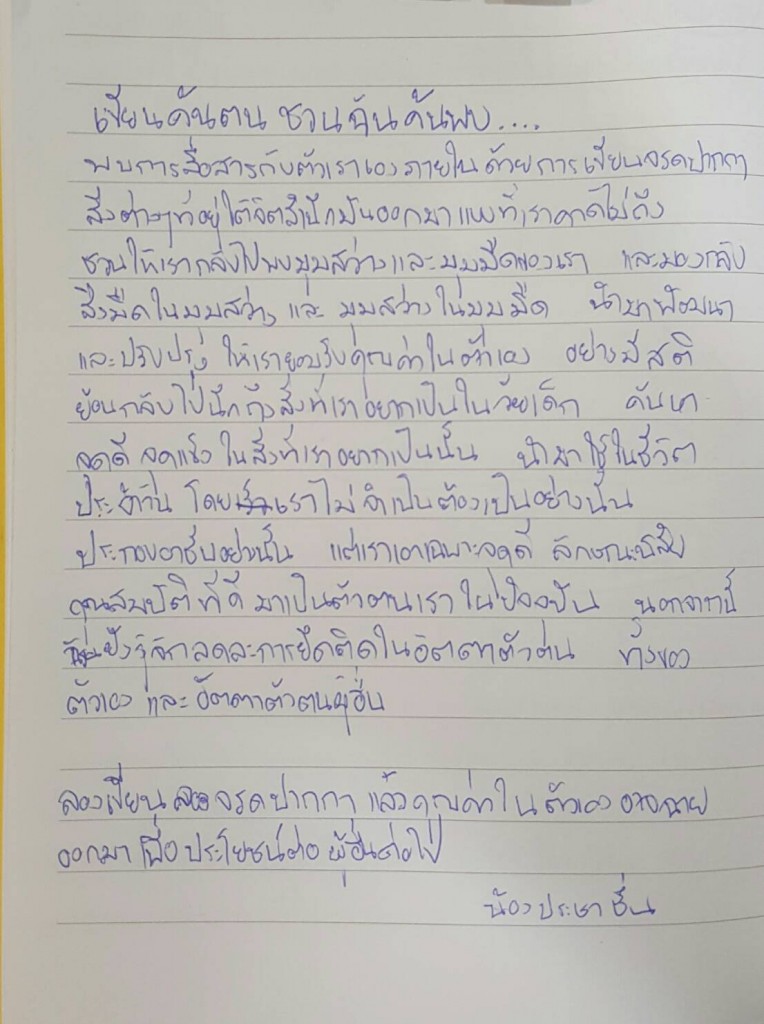 เขียนค้นตน ชวนฉันค้นพบ....
พบการสื่อสารกับตัวเราเองภายใน ด้วยการเขียนจรดปากกา
สิ่งต่างๆที่อยู่ใต้จิตสำนึกมันออกมาแบบที่เราคาดไม่ถึง
ชวนให้เรากลับไปพบมุมสว่าง และมุมมืดของเรา และมองกลับ
สิ่งมืดในมุมสว่าง และ มุมสว่างในมุมมืด นำมาพัฒนา
และปรับปรุง ให้เรายอมรับคุณค่าในตัวเอง อย่างมีสติ
ย้อนกลับไปนึกถึงสิ่งที่เราอยากเป็นในวัยเด็ก ค้นหา
จุดดี จุดแข็ง ในสิ่งที่เราอยากเป็นนั้น นำมาใช้ในชีวิต
ประจำวัน โดยเราไม่จำเป็นต้องเป็นอย่างนั้น
ประกอบอาชีพอย่างนั้น แต่เราเอาเฉพาะจุดดี ลักษณะนิสัย
คุณสมบัติที่ดี มาเป็นตัวตนเราในปัจจุบัน นอกจากนี้
ยังรู้จักลดละการยึดติดในอัตตาตัวตน ทั้งของ
ตัวเอง และ อัตตาตัวตนผู้อื่น
ลองเขียน จรดปากกา แล้วคุณค่าในตัวเอง อาจฉาย
ออกมา เพื่อ ประโยชน์ต่อ ผู้อื่นต่อไป
น้องประชาชื่น